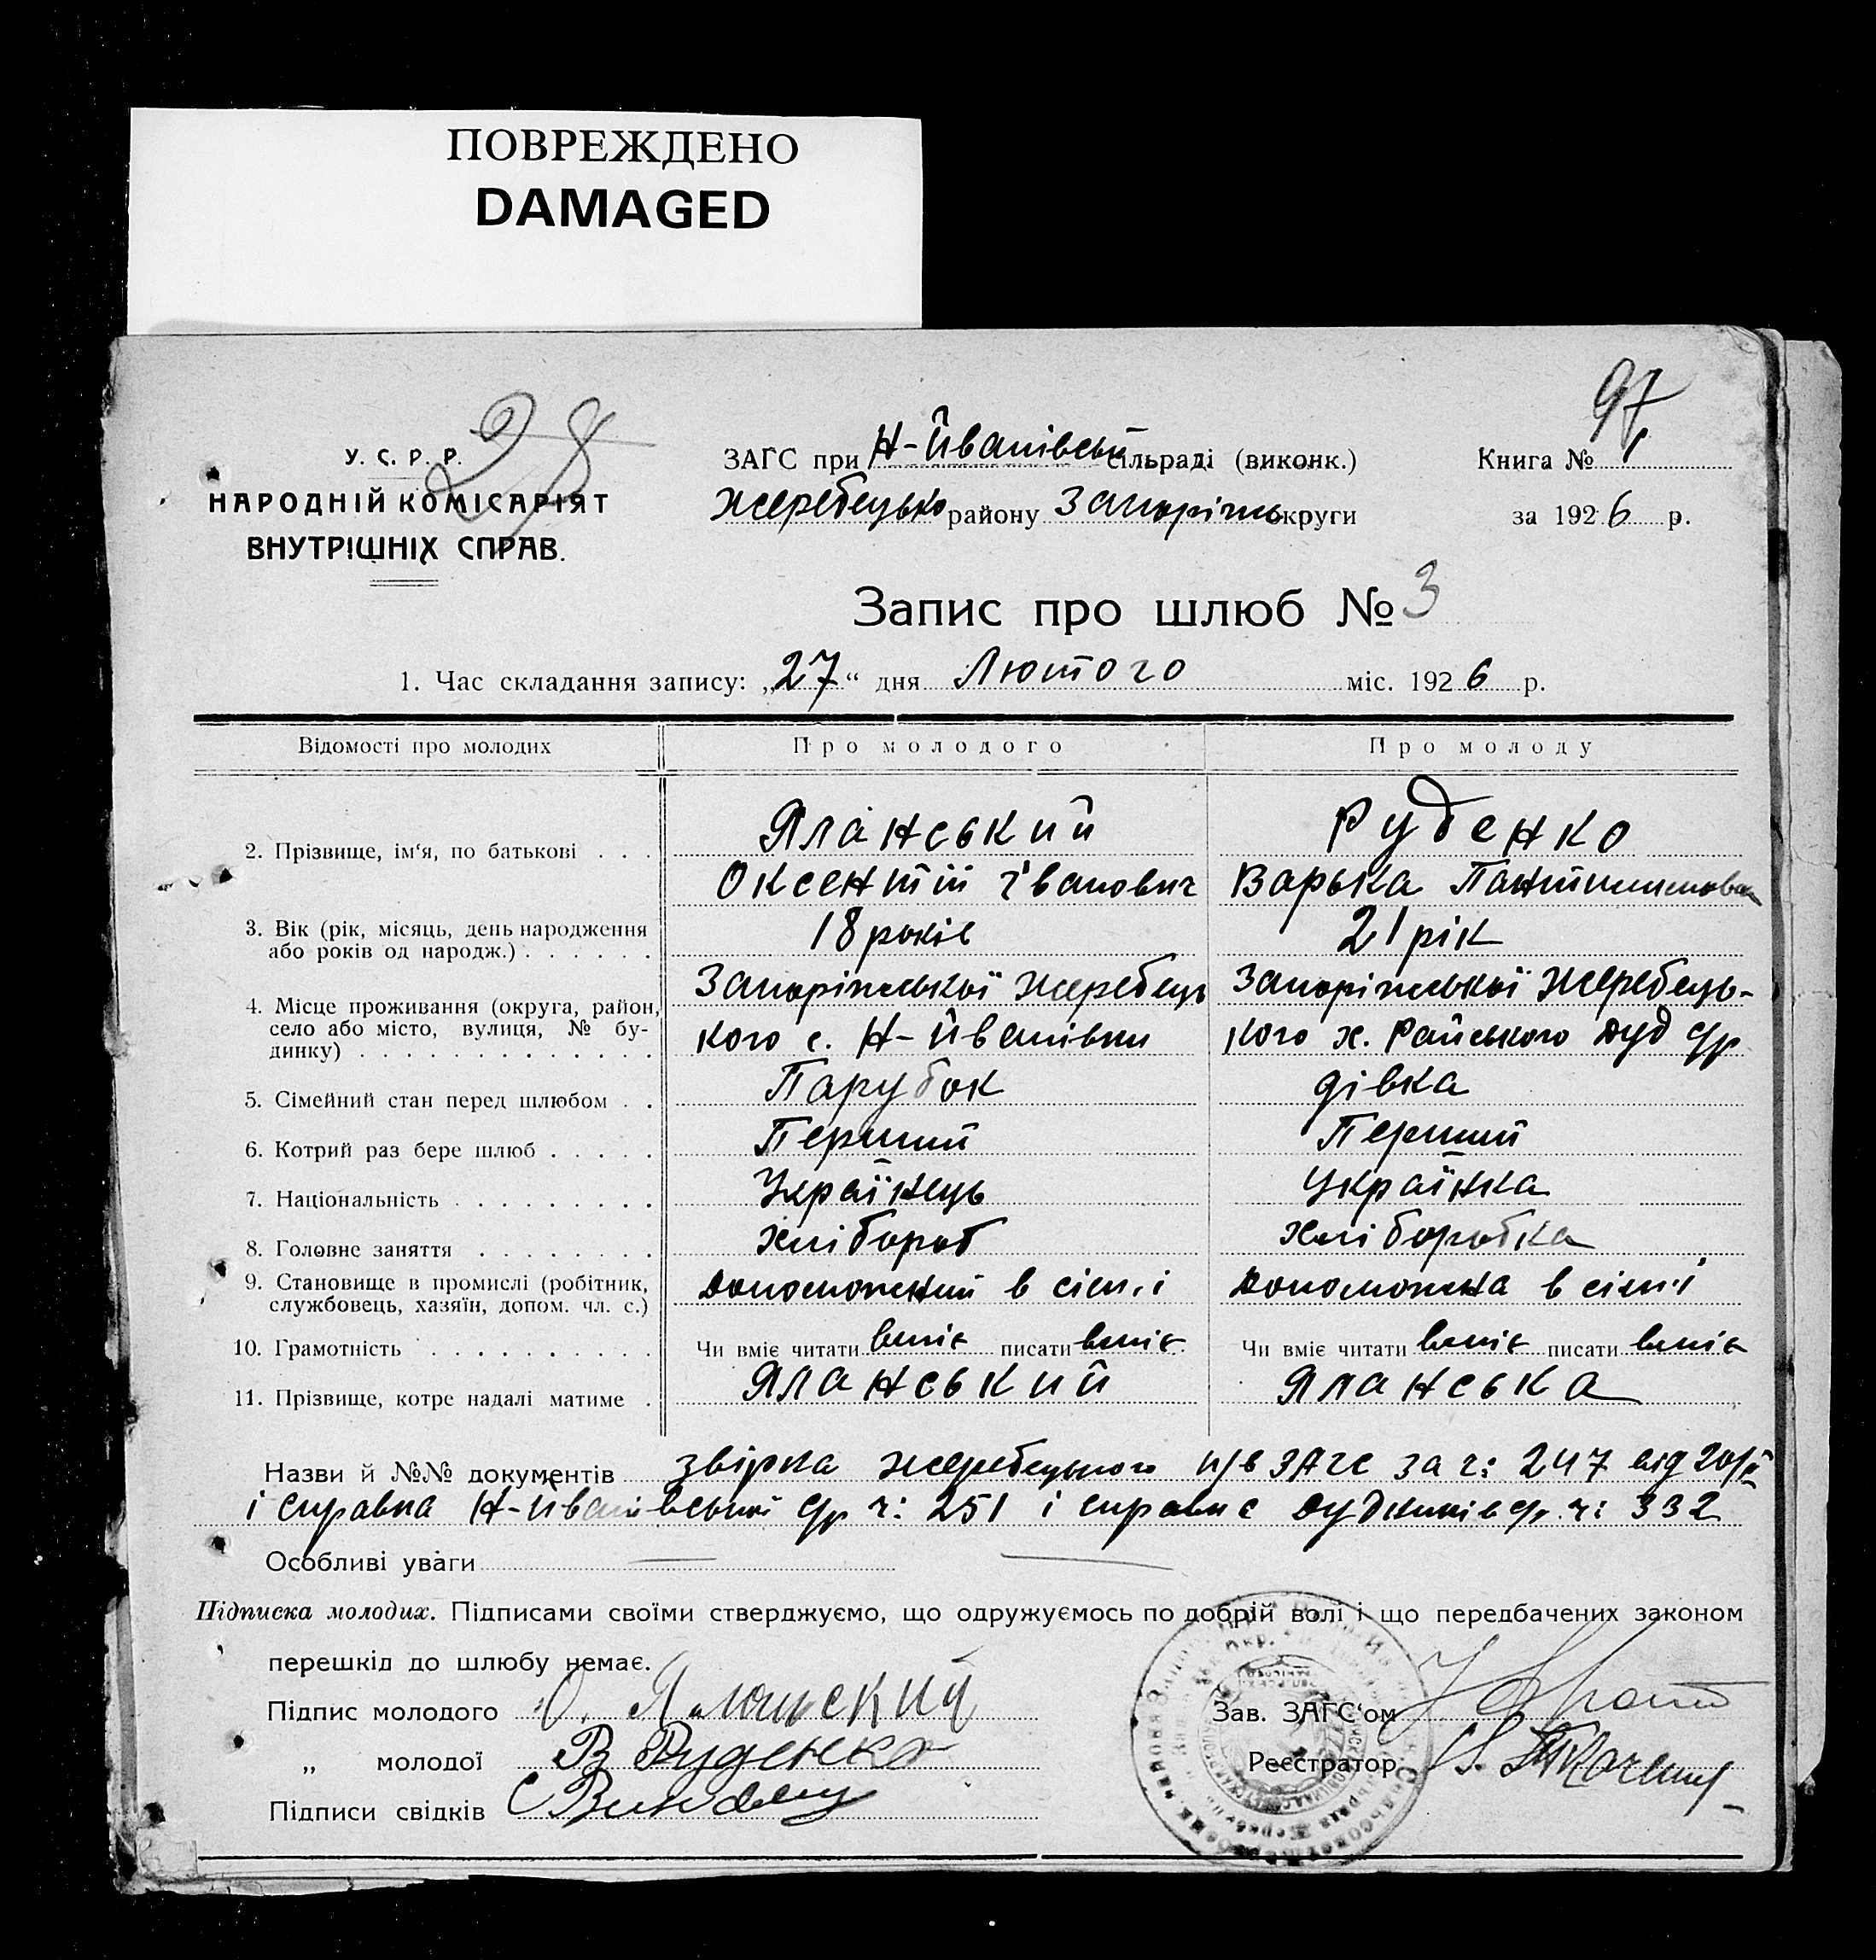 ПОВРЕЖДЕНО
DAMAGED
97
28
У. С. Р. Р.
НАРОДНІЙ КОМІСАРІЯТ
ВНУТРІШНІХ СПРАВ.
ЗАГС при Н-Йванівські сільраді (виконк.)
Жеребецько району Запоріжь округи
Книга № 1
за 1926 р.
Запис про шлюб № 3
1. Час складання запису: „27“ дня Лютого міс. 1926 р.
Відомості про молодих Про молодого Про молоду
2. Прізвище, ім‘я, по батькові . . . Яланський Руденко
Оксентій Іванович Варька
3. Вік (рік, місяць, день народження або років од народж.) . . . . . . 18 років 21 рік
4. Місце проживання (округа, район, село або місто, вулиця, № будинку) . . . . . . . . . . . . .
Запоріжської Жеребець Запоріжської Жеребець-
кого с. Н-Йванівки кого х. Райського Дуд с/р
5. Сімейний стан перед шлюбом . . Парубок дівка
6. Котрий раз бере шлюб . . . . . Перший Перший
7. Національність . . . . . . . . . Українець Українка
8. Головне заняття . . . . . . . . хлібороб хліборобка
9. Становище в промислі (робітник, службовець, хазяїн, допом. чл. с.) допоможний в сім'ї допоможна в сім'ї
10. Грамотність . . . . . . . . . . Чи вміє читати вміє писати вміє Чи вміє читати вміє писати вміє
11. Прізвище, котре надалі матиме . Яланський Яланська
Назви й №№ документів звірка жеребецького ЗАГС за ч: 247 від
і справка Н-Йванівської с/р ч: 251 і справка с/р. ч: 332
Особливі уваги
Підписка молодих. Підписами своїми стверджуємо, що одружуємось по добрій волі і що передбачених законом
перешкід до шлюбу немає.
Підпис молодого О. Яланский
„ молодої В Руденко
Підписи свідків
Зав. ЗАГС‘ом
Реєстратор